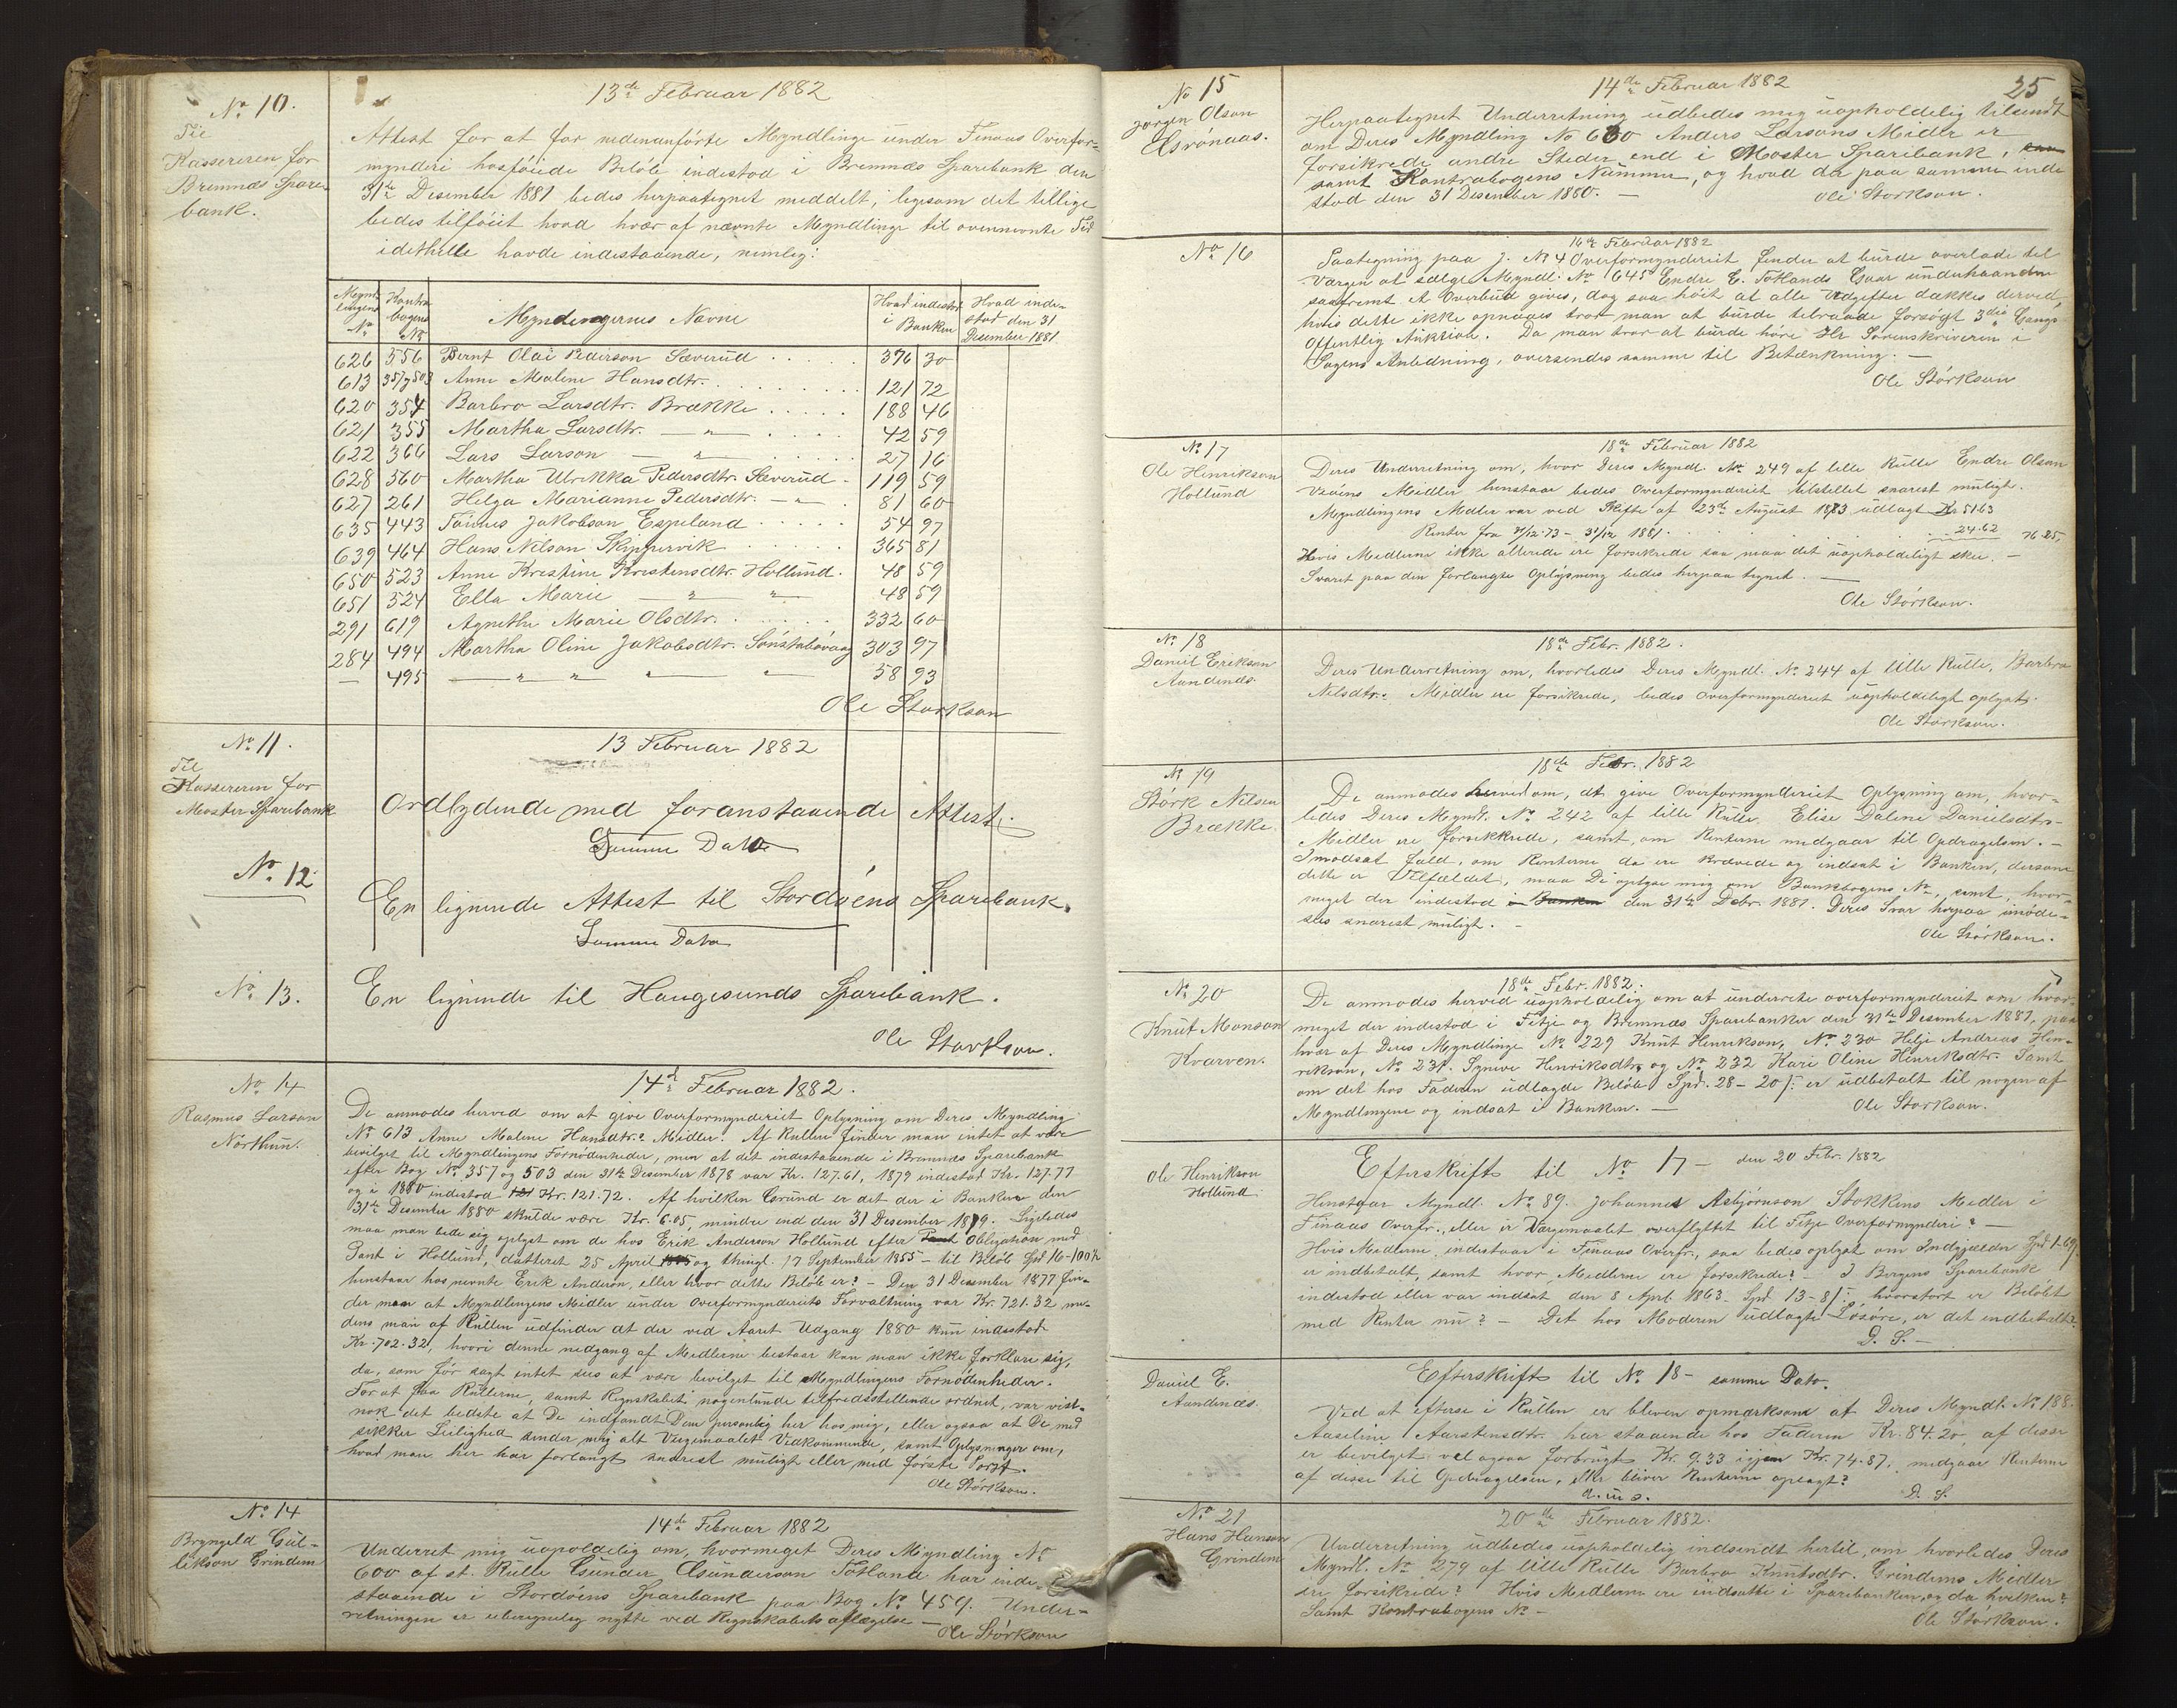 No 10.
Til
Kassereren for
Bremnæs Spare-
bank.
13de Februar 1882
Attest for at for nedenanførte Myndlinge under Finaas Overfor-
mynderi hosføiede Beløb indestod i Bremnæs Sparebank den
31te Desember 1881 bedes herpaategnet meddelt, ligesom det tillige
bedes tilføiet hvad hvær af nævnte Myndlinge til ovennevnte Tid
idethelle havde indestaaende, nemlig:
Mynd-
lingens
No
Kontra
bogens
No
Myndlingernes Navne
Hvad indestod
i Banken
Hvad inde-
stod den 31
Desember 1881
626 356 Bernt Olai Pederson Sæverud 376 30
613 357 og 503 Anne Malene Hansdtr. 121 72
620 354 Barbro Larsdtr. Brække 188 46
621 355 Martha Larsdtr. — " 42 59
622 366 Lars Larson — " 27 16
628 360 Martha Ulrikka Pedersdtr. Sæverud 119 59
627 261 Helga Marianne Pedersdtr. — " 81 60
635 443 Tønnes Jakobson Espeland 54 97
639 464 Hans Nilson Skippervik 365 81
650 523 Anne Kristine Kristensdtr. Hollund 48 59
651 524 Ella Marie — " — " 48 59
291 619 Agnethe Marie Olsdtr. 332 60
284 494 Martha Oline Jakobsdtr. Sønstabøvaag 303 97
— 495 — " " — " — " 58 93
Ole Størkson
No 11.
Til
Kassereren for
Moster Sparebank
13 Februar 1882
Ordlydende med foranstaaende Attest.
Samme Dato
No 12
En lignende Attest til Stordøens Sparebank.
Samme Dato
No 13.
En lignende til Haugesunds Sparebank.
Ole Størkson.
No 14
Rasmus Larson
Nørthun.
14de Februar 1882.
De anmodes herved om at give Overformynderiet Oplysning om Deres Myndling
No 613 Anne Malene Hansdtr.s Midler. Af Rullen finder man intet at være
bevilget til Myndlingens Fornødenheder, men at det indestaaende i Bremnæs Sparebank
efter Bog No 357 og 503 den 31te Desember 1878 var Kr. 127.61, 1879 indestod Kr. 127.77
og i 1880 indestod Kr. 121.72. Af hvilken Grund er det der i Banken den
31te Desember 1880 skulde være Kr. 6.05, mindre end den 31 Desember 1879. Ligeledes
maa man bede sig oplyst om de hos Erik Anderson Hollund efter Obligation med
Pant i Hollund, datteret 25 April og thingl. 17 September 1855 - til Beløb Spd 16-100 s
henstaar hos nevnte Erik Anderson, eller hvor dette Beløb er? - Den 31 Desember 1877 fin-
der man at Myndlingens Midler under Overformynderiets Forvaltning var Kr. 721.32 me-
dens man af Rullen udfinder at der ved Aaret Udgang 1880 kun indestod
Kr. 702.32, hvori denne nedgang af Medlerne bestaar kan man ikke forklare sig,
da, som før sagt intet sees at være bevilget til Myndlingens Fornødenheder.
For at faa Rullerne, samt Regnskabet nogenlunde tilfredsstellende ordnet, var vist-
nok det bedste at De indfandt Dem personlig her hos mig, eller ogsaa at De med
sikker Leilighed sender mig alt Vergemaalet Vedkommende, samt Oplysninger om,
hvad man her har forlangt snarest muligt eller med første Post.
Ole Størkson.
No 14
Bryngeld Gul-
likson Grindem
14de Februar 1882
Underret mig uopoldelig om, hvormeget Deres Myndling No
600 af st. Rulle Gunder Gunderson Tøtland har inde-
staaende i Stordøens Sparebank paa Bog No 459. Under-
retningen er uberegnelig nytte ved Regnskabets aflægelse —
Ole Størkson
25
No 15
Jørgen Olson
Grønaas.
14de Februar 1882
Herpaategnet Underretning udbedes mig uopholdelig tilsendt
om Deres Myndling No 680 Anders Larsons Midler er
forsikrede andre Steder end i Moster Sparebank,
samt Kontrabogens Nummer, og hvad der paa samme inde
stod den 31 Desember 1880. —
Ole Størkson.
No 16
16de Februar 1882
Paategning paa J. No 4 Overformynderiet finder at burde overlade til
Vergen at sælge Myndl. No 645 Endre E. Totlands Gaar underhaanden
saafremt et Overbud gives, dog saa høit at alle Udgifter dækkes derved,
hvis dette ikke opnaaes tror man at burde tilraade forsøgt 3die Gangs
Offentlig Auktion. Da man tror at burde høre Hr Sorenskriveren i
Sagens Anledning, oversendes samme til Betænkning. —
Ole Størkson
No 17
Ole Henrikson
Hollund
18de Februar 1882
Deres Underretning om, hvor Deres Myndl. No 249 af lille Rulle Endre Olson
Vevens Midler henstaar bedes Overformynderiet tilstellet snarest muligt.
Myndlingens Midler var ved Skifte af 23de August 1873 udlagt Kr 51.63
Renter fra 31/12.73 - 31/12 1881. 24.62 76.25,
Hvis Medlerne ikke allerede ere forsikrede saa maa det uopholdeligt skee. —
Svaret paa den forlangte Oplysning bedes herpaa tegnet. —
Ole Størkson.
No 18
Daniel Erikson
Aandenæs.
18de Febr. 1882.
Deres Underretning om, hvorledes Deres Myndl. No 244 af lille Rulle, Barbro
Nilsdtr.s Midler ere forsikrede, bedes Overformynderiet uopholdeligt oplyst.
Ole Størkson.
No 19
Størk Nilsen
Brække.
18de Febr. 1882
De anmodes herved om, at give Overformynderiet Oplysning om, hvor-
ledes Deres Myndl. No 242 af lille Rulle, Elise Daline Danielsdtrs-
Midler ere forsikkrede, samt, om Renterne medgaar til Opdragelsen. —
I modsat fald, om Renterne da ere krævede og indsat i Banken, dersom
dette er Tilfældet, maa De oplyse mig om Bankbogens No, samt, hvor-
meget der indestod i Banken den 31te Debr. 1881. Deres Svar herpaa imøde-
sees snarest muligt. —
Ole Størkson.
No 20
Knut Monson
Kvarven.
18de Febr. 1882.
De anmodes herved uopholdelig om at underrete overformynderiet om hvor-
meget der indestod i Fitje og Bremnæs Sparebanker den 31te Desember 1881, paa
hvær af Deres Myndlinge No 229 Knut Henrikson, No 230 Helje Andreas Hen-
rikson, No 231. Synneve Henriksdtr, og No 232 Kari Oline Henriksdtr. Samt
om det hos Faderen udlagde Beløb Spd. 28 - 20 s. er udbetalt til nogen af
Myndlingene og indsat i Banken. —
Ole Størkson.
Ole Henrikson
Hollund
Efterskrift til No 17 — den 20 Febr. 1882
Henstaar Myndl. No 89. Johannes Asbjørnson Stokkens Medler i
Finaas Overfr., eller er Vergemaalet overflyttet til Fitje Overformynderi? —
Hvis Medlerne indestaar i Finaas Overfr., saa bedes oplyst om Indgjælden Spd 1-69
er indbetalt, samt hvor Medlerne ere forsikrede? — I Bergens Sparebank
indestod eller var indsat den 8 Aprl. 1863. Spd. 13-81 hvorstort er Beløbet
med Renter nu? — Det hos Moderen udlagte Løsøre, er det indbetalt?
D. S. —
Daniel E.
Aandenæs.
Efterskrift til No 18 — samme Dato.
Ved at efterse i Rullen er bleven opmærksom at Deres Myndl. No 188.
Aaseline Aarstensdtr. har staaende hos Faderen Kr. 84.20, af disse
er bevilget vel ogsaa forbrugt Kr. 9.33 igjen Kr. 74.87, medgaar Renterne
af disse til Opdragelsen, eller bliver Renterne oplagt?
D. S.
No 21
Hans Hanson
Grindem
20de Februar 1882.
Underretning udbedes uopholdelig indsendt hertil, om hvorledes Deres
Myndl. No 279 af lille Rulle Barbro Knutsdtr. Grindems Medler
ere forsikrede? Hvis Medlerne ere indsatte i Sparebanken, og da hvilken?
Samt Kontrabogens No —
Ole Størkson.